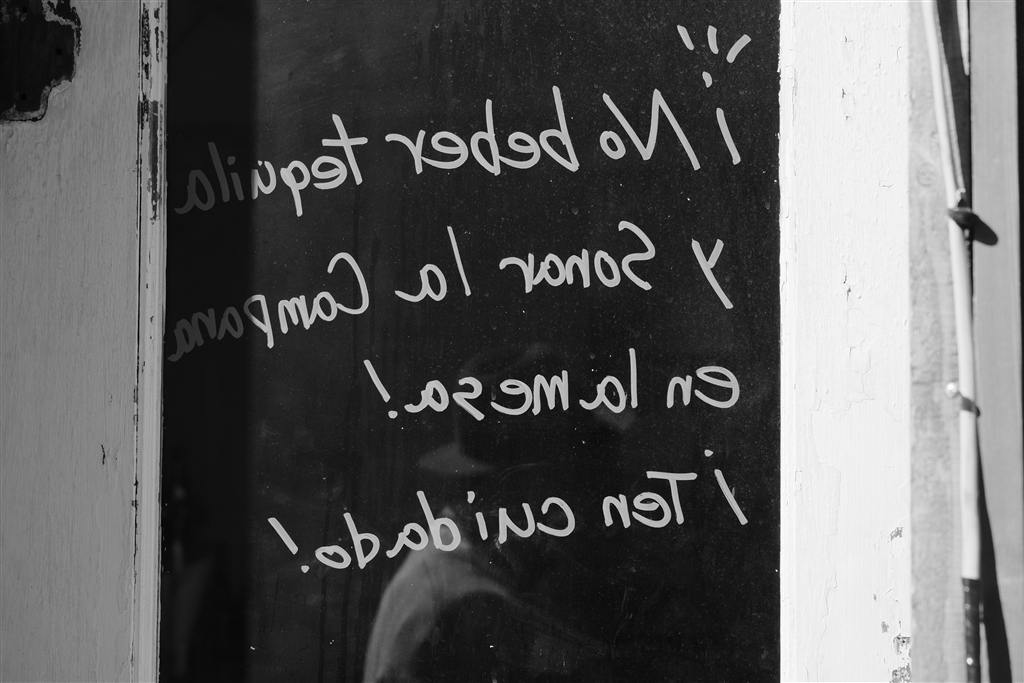 ¡No beber tequila
y Sonar la Campana
en la mesa!
¡Ten cuidado!